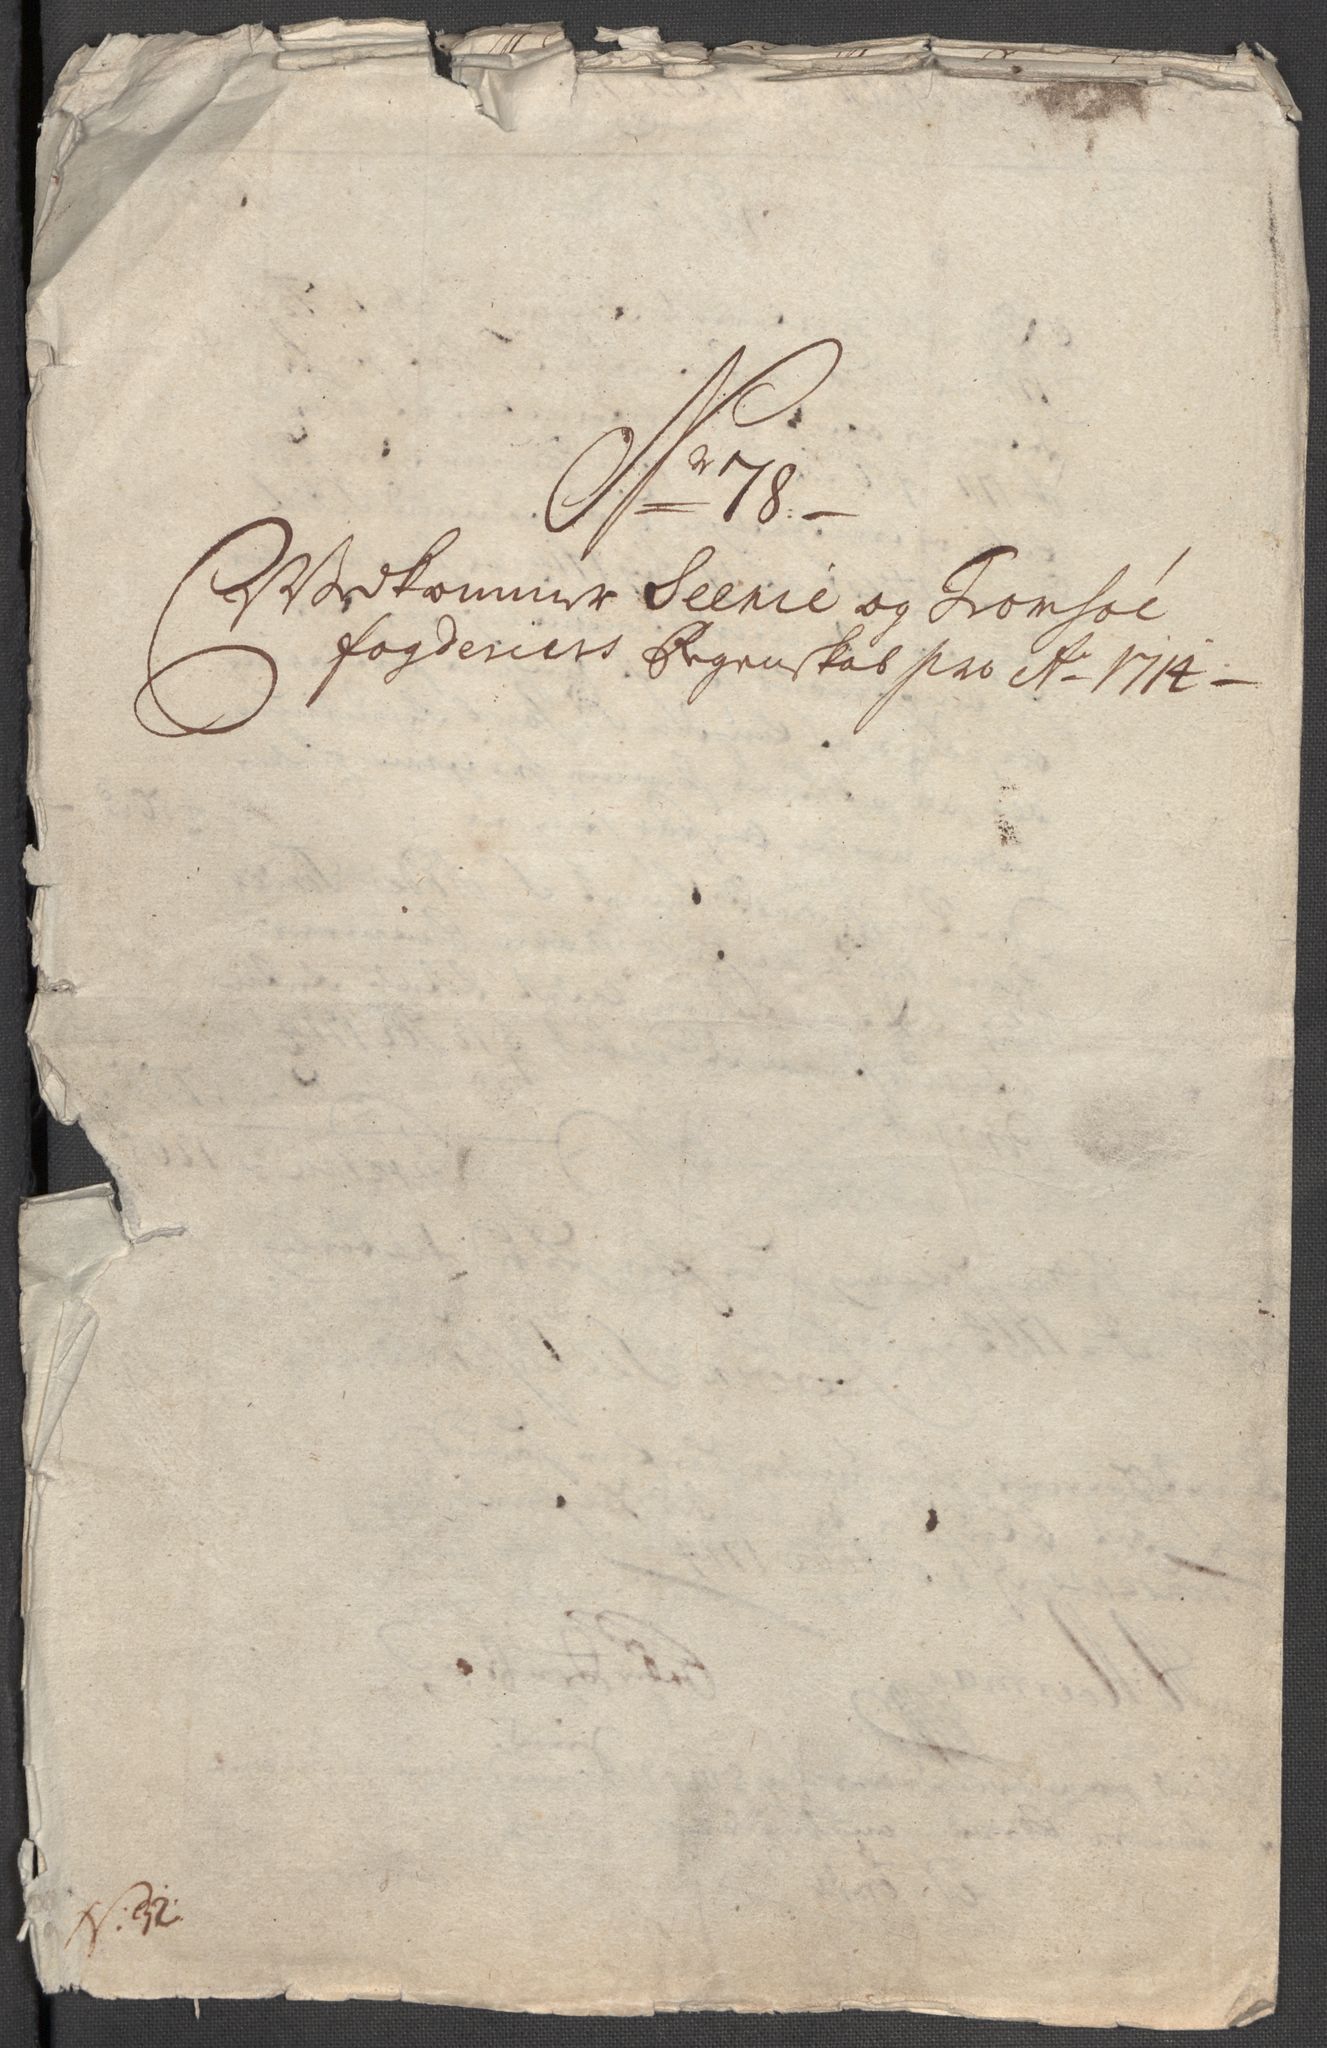 Nr 78.
Vedkommer Seenie og Tromsøe
fogderiers Regenskab pro Ao 1714.
N. 32.